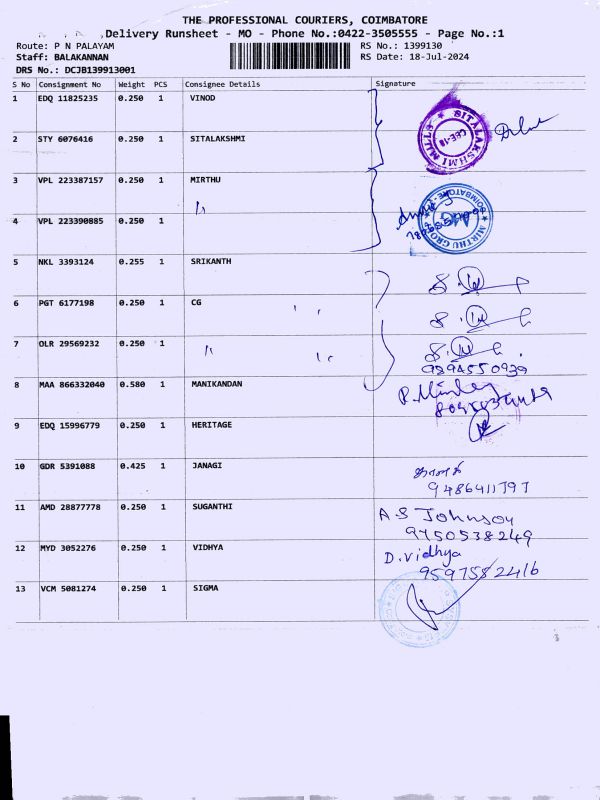 THE PROFESSIONAL COURIERS, COIMBATORE
Delivery Runsheet - MO - Phone No.:0422-3505555 - Page No.:1
Route: P N PALAYAM RS No.: 1399130
Staff: BALAKANNAN RS Date: 18-Jul-2024
DRS No.: DCJB139913001
S No Consignment No Weight PCS Consignee Details Signature
1 EDQ 11825235 0.250 1 VINOD
SITALAKSHMI MILLS
2 STY 6076416 0.250 1 SITALAKSHMI
3 VPL 223387157 0.250 1 MIRTHU
MIRTHU GROUP COIMBATORE
4 VPL 223390885 0.250 1
5 NKL 3393124 0.255 1 SRIKANTH
6 PGT 6177198 0.250 1 CG
7 OLR 29569232 0.250 1
9894550939
8 MAA 866332040 0.580 1 MANIKANDAN
9 EDQ 15996779 0.250 1 HERITAGE
10 GDR 5391088 0.425 1 JANAGI
ஜானகி
9486411797
11 AMD 28877778 0.250 1 SUGANTHI A S Johnsoy
9750538249
12 MYD 3052276 0.250 1 VIDHYA D. Vidhya
9597582416
13 VCM 5081274 0.250 1 SIGMA